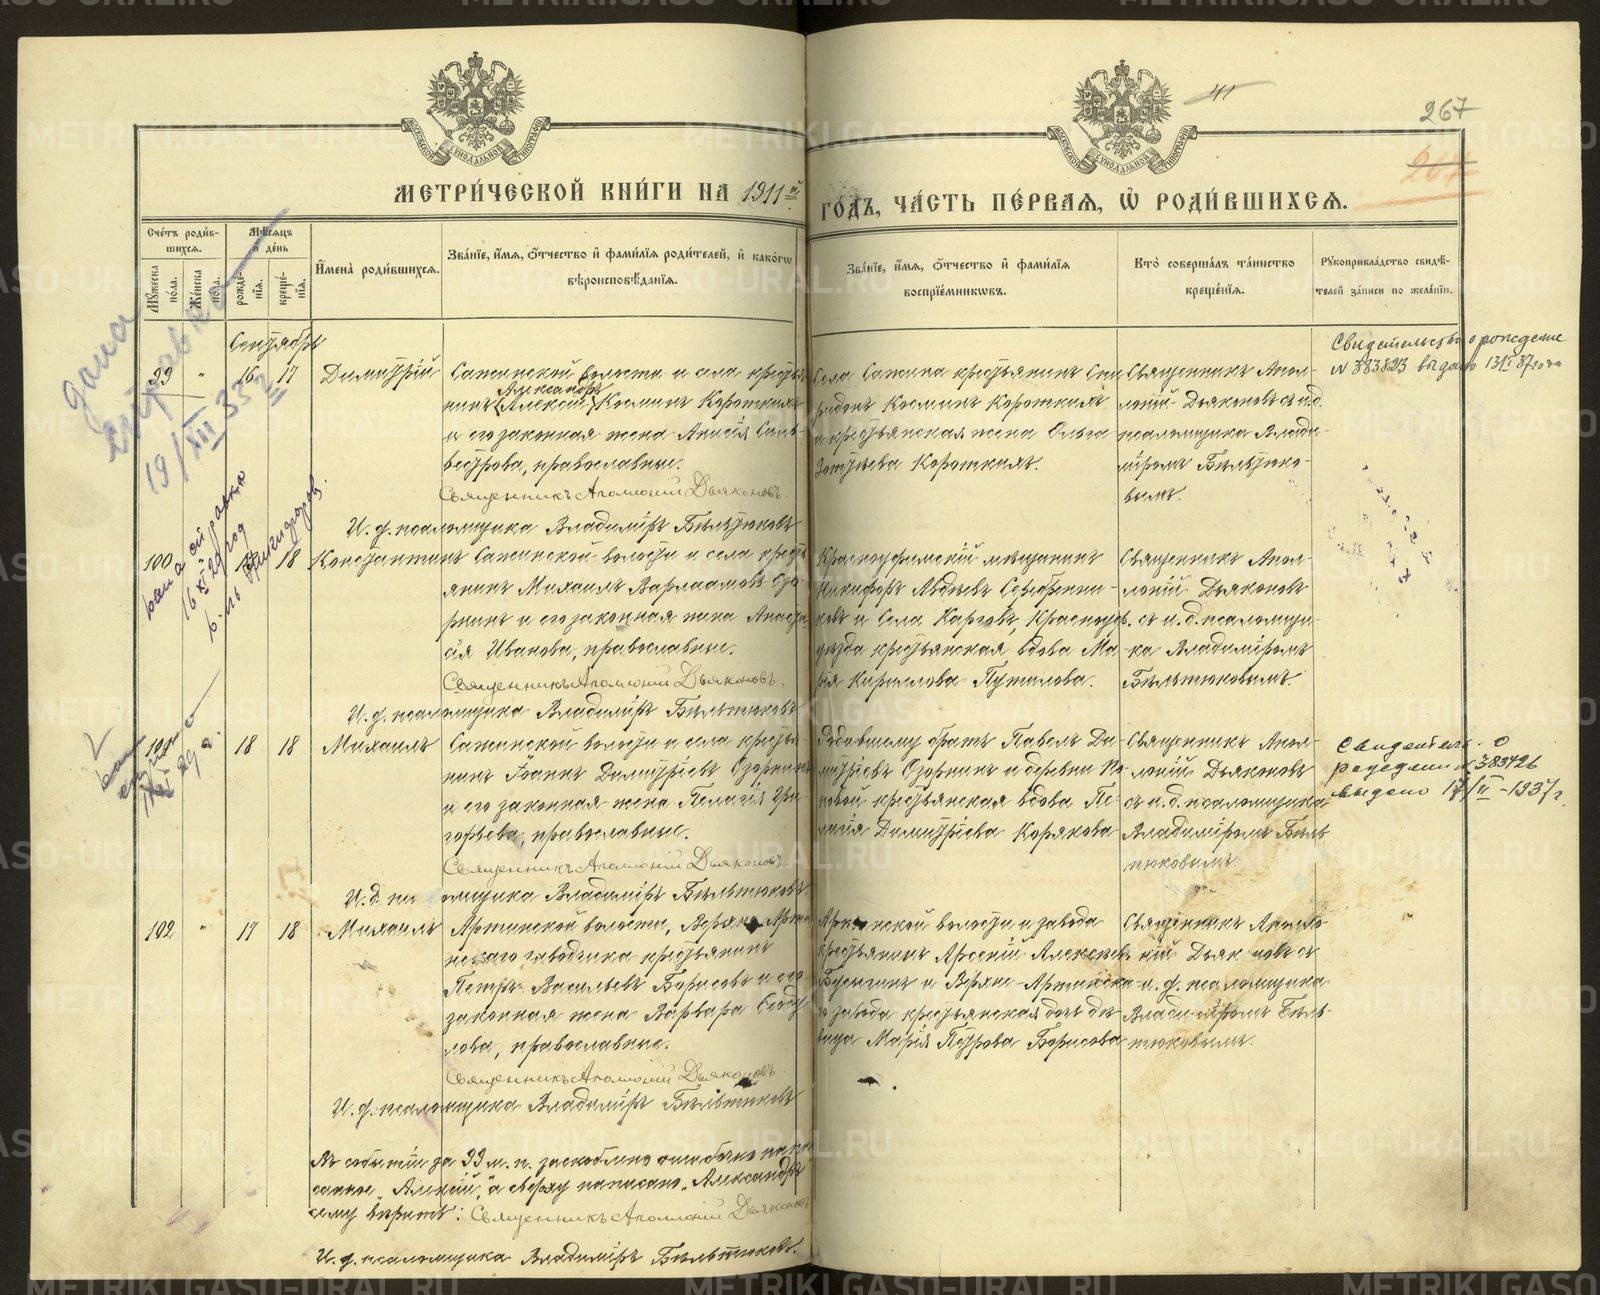 41
267
267
МЕТРИ́ЧЕСКОЙ КНИ́ГИ НА 1911й ГО́ДЪ, ЧА́СТЬ ПЕ́РВАѦ, Ѡ҆ РОДИ́ВШИХСѦ.
Сче́тъ роди́в-
шихсѧ.
Мꙋ́жеска по́ла.
Же́нска по́ла.
Мѣ́сѧцъ
и҆ де́нь
рожде́-
нїѧ.
креще́-
нїѧ.
И҆мена̀ роди́вшихсѧ.
Зва́нїе, и҆́мѧ, ѻ҆́тчество и҆ фами́лїѧ роди́телей, и҆ како́гѡ
вѣроисповѣ́данїѧ.
Зва́нїе, и҆́мѧ, ѻ҆́тчество и҆ фами́лїѧ
воспрїе́мникѡвъ.
Кто̀ соверша́лъ та́инство
креще́нїѧ.
Рꙋкоприкла́дство свидѣ́-
телей за́писи по жела́нїю.
Сентября
99 " 16 17 Димитрій
Сажинской волости и села кресть-
Александръ
нинъ (Алексій) Косминъ Короткихъ
и его законная жена Анисія Силь-
вестрова, православные.
Священникъ Аполлоній Дьяконовъ.
И. д. псаломщика Владиміръ Бѣльтюковъ
Села Сажина крестьянинъ Спи
ридонъ Косминъ Короткихъ
и крестьянская жена Ольга
Зотиева Короткихъ.
Священникъ Апол-
лоній Дьяконовъ съ и.д.
псаломщика Влади-
міромъ Бѣльтюко-
вымъ.
Свидетельство о рождение
N 383823 выдано
дана
справка
19/XII 33
100 18 Константинъ
Сажинской волости и села кресть-
янинъ Михаилъ Варлаамовъ Озо-
рнинъ и его законная жена Анаста
сія Иванова, православные.
Священникъ Аполлоній Дьяконовъ.
И. д. псаломщика Владиміръ Бѣльтюковъ
Красноуфимскій мѣщанинъ
Никифоръ Авдѣевъ Серебренни-
ковъ и Села Каргов, Красноуф.
уѣзда крестьянская вдова Ма
рія Кириллова Путилова.
Священникъ Апол-
лоній Дьяконовъ
съ и.д. псаломщи-
ка Владиміромъ
Бѣльтюковымъ.
101 18 18 Михаилъ
Сажинской волости и села крестья-
нинъ Іоаннъ Димитріевъ Озорнинъ
и его законная жена Пелагія Гри-
горьева, православные.
Священникъ Аполлоній Дьяконовъ.
И.д. псаломщика Владиміръ Бѣльтюковъ
Родившему братъ Павелъ Ди
митріевъ Озорнинъ и деревни
крестьянская вдова Пе-
лагія Димитріева Корякова
Священникъ Апол-
лоній Дьяконовъ
съ и.д. псаломщика
Владиміромъ Бѣль
тюковымъ
Свидетель. о
рождении N 383426
выдано 17/II - 1937 г.
102 " 17 18 Михаилъ
Артинской волости, Верхне Арти
нскаго заводчика крестьянинъ
Петръ Васильевъ Борисовъ и его
законная жена Варвара
лова, православные.
Священникъ Аполлоній Дьяконовъ
И. д. псаломщика Владиміръ Бѣльтюковъ
Артинской волости и завода
крестьянинъ Арсеній Алексѣевъ
Бусыгинъ и Верхне-Артинска
го завода крестьянская дочь дѣ-
вица Марія Петрова Борисова
Священникъ Аполло
ній Дьяконовъ съ
и. д. псаломщика
Владиміромъ Бѣль-
тюковымъ.
Въ событіи за 99 м. п. заскоблено ошибочно напи
санное „Алексій", а сверху написано „Александръ"
сему вѣрить: Священникъ Аполлоній Дьяконовъ
И. д. псаломщика Владиміръ Бѣльтюковъ.
METRIKI.GASO-URAL.RU